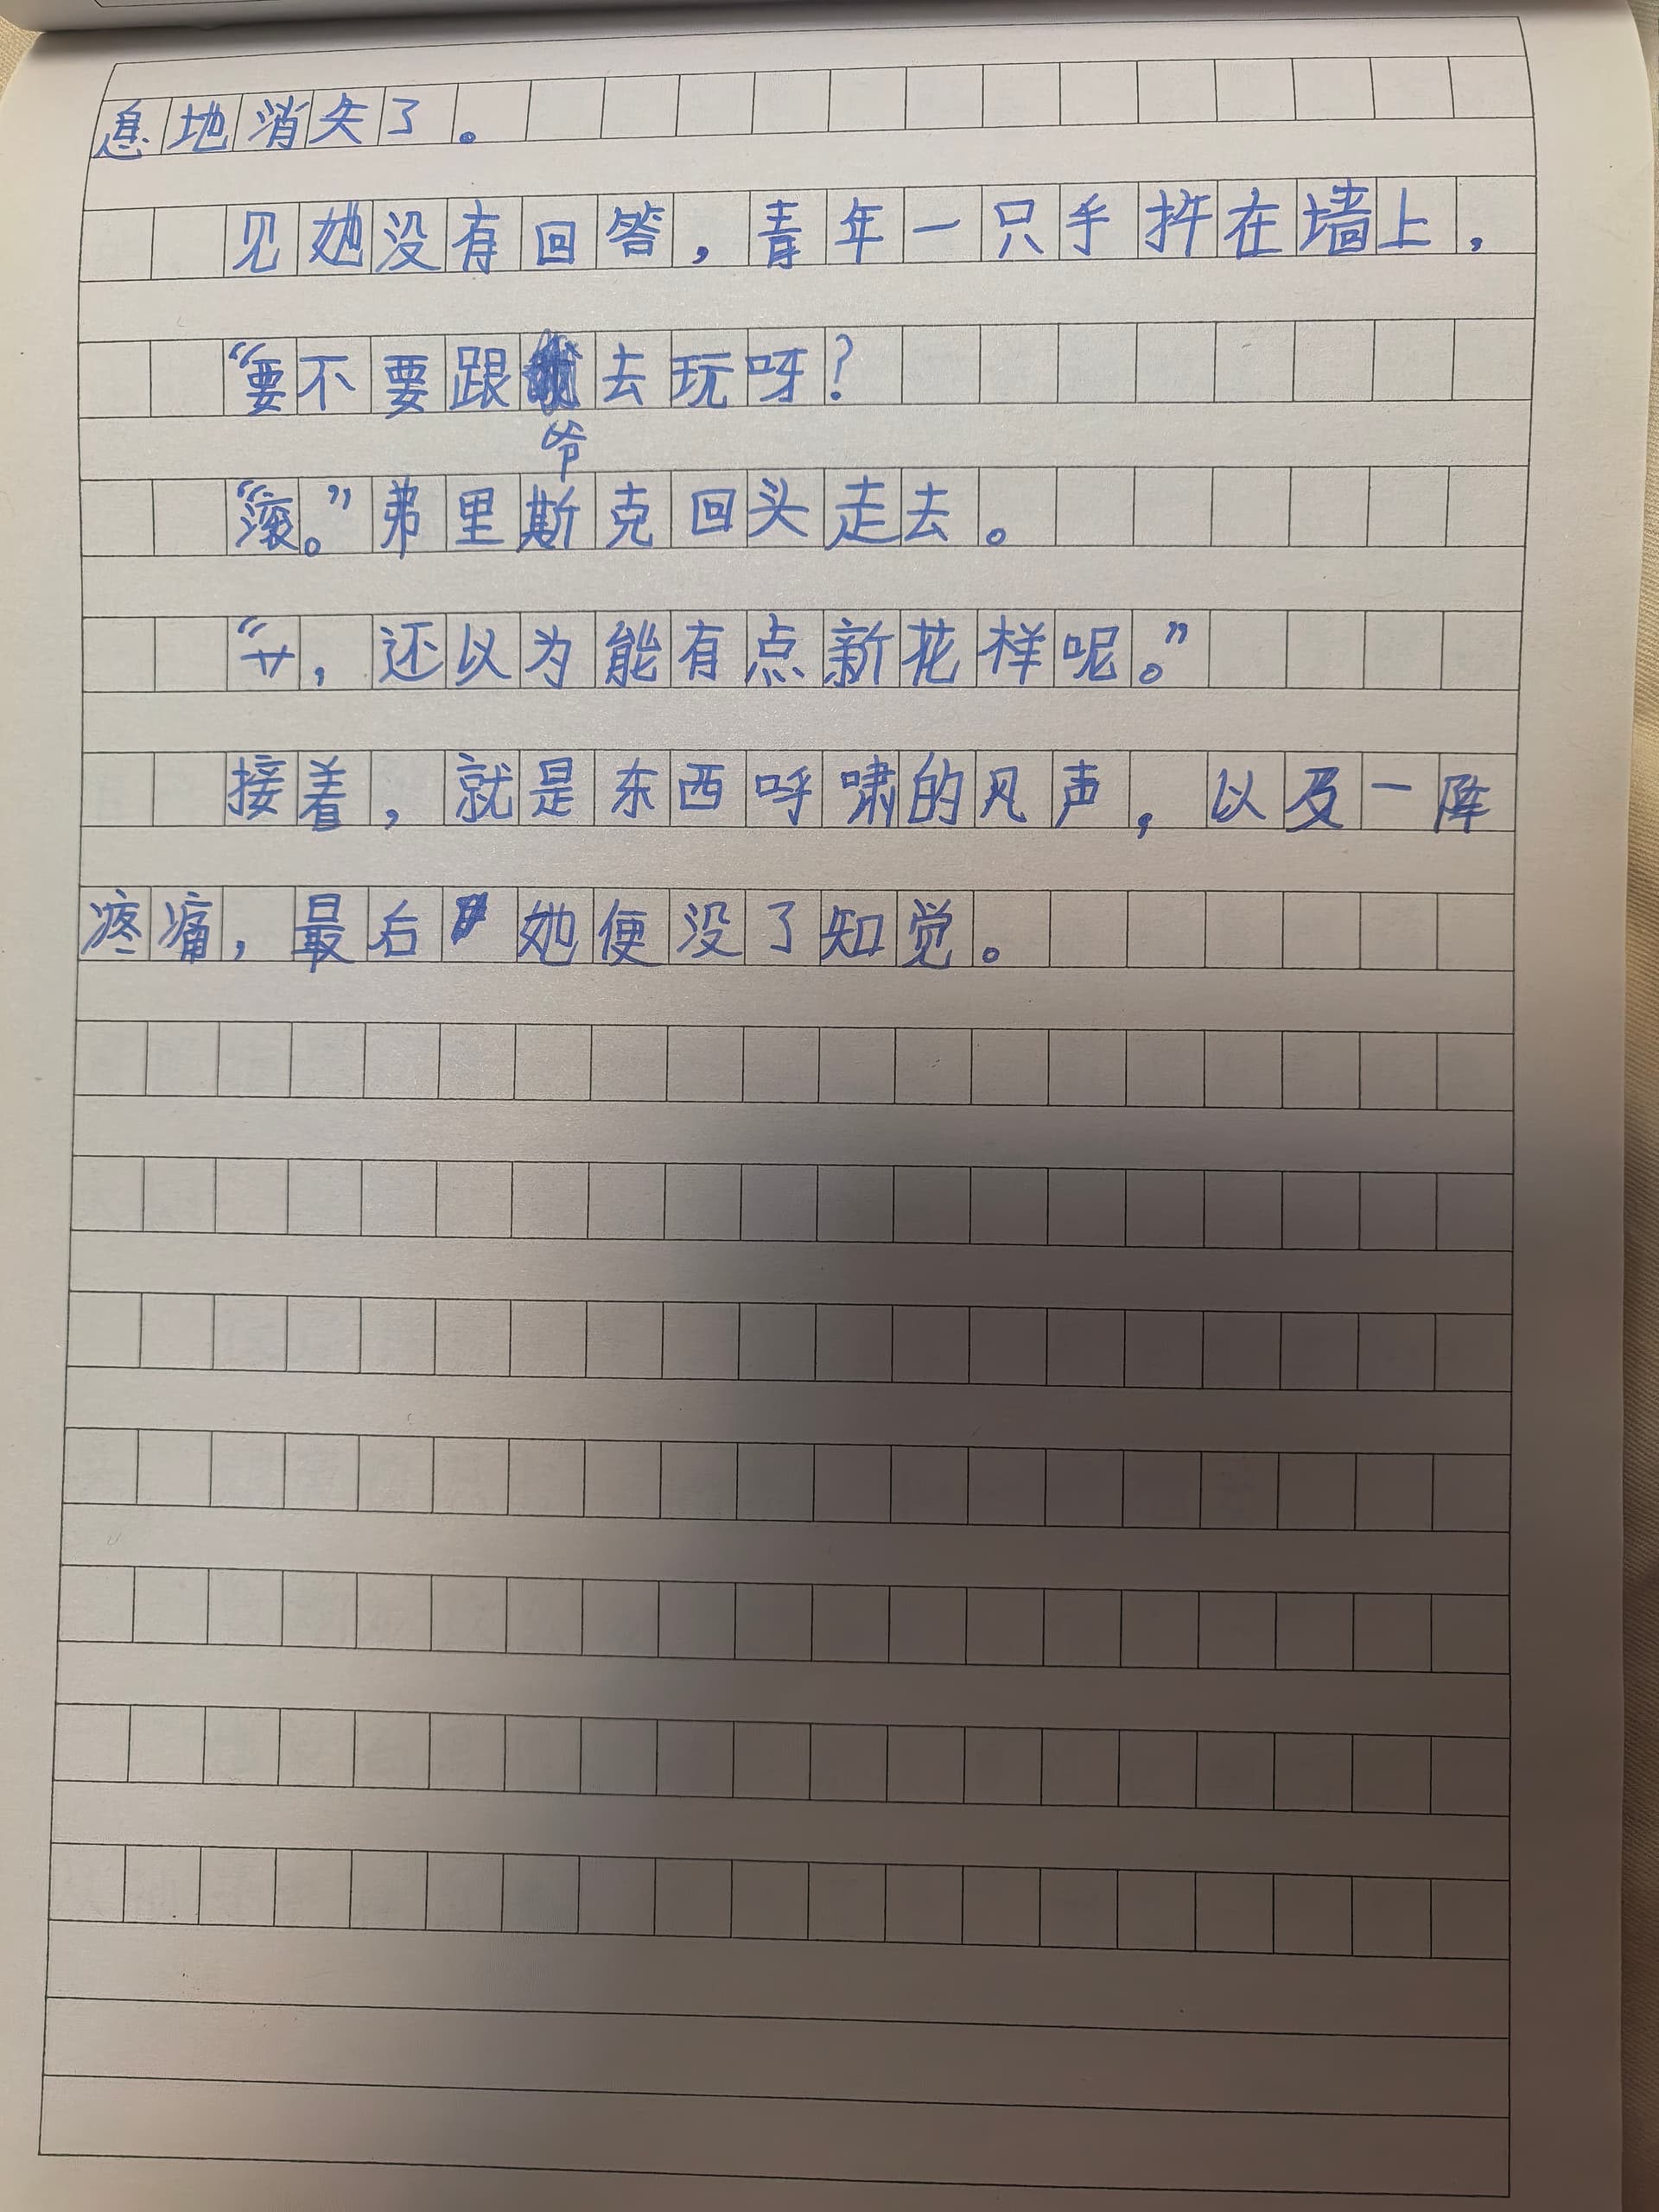 息地消失了。
见她没有回答，青年一只手拤在墙上，
“要不要跟爷去玩呀？
“滚。”弗里斯克回头走去。
“艹，还以为能有点新花样呢。”
接着，就是东西呼啸的风声，以及一阵
疼痛，最后她便没了知觉。